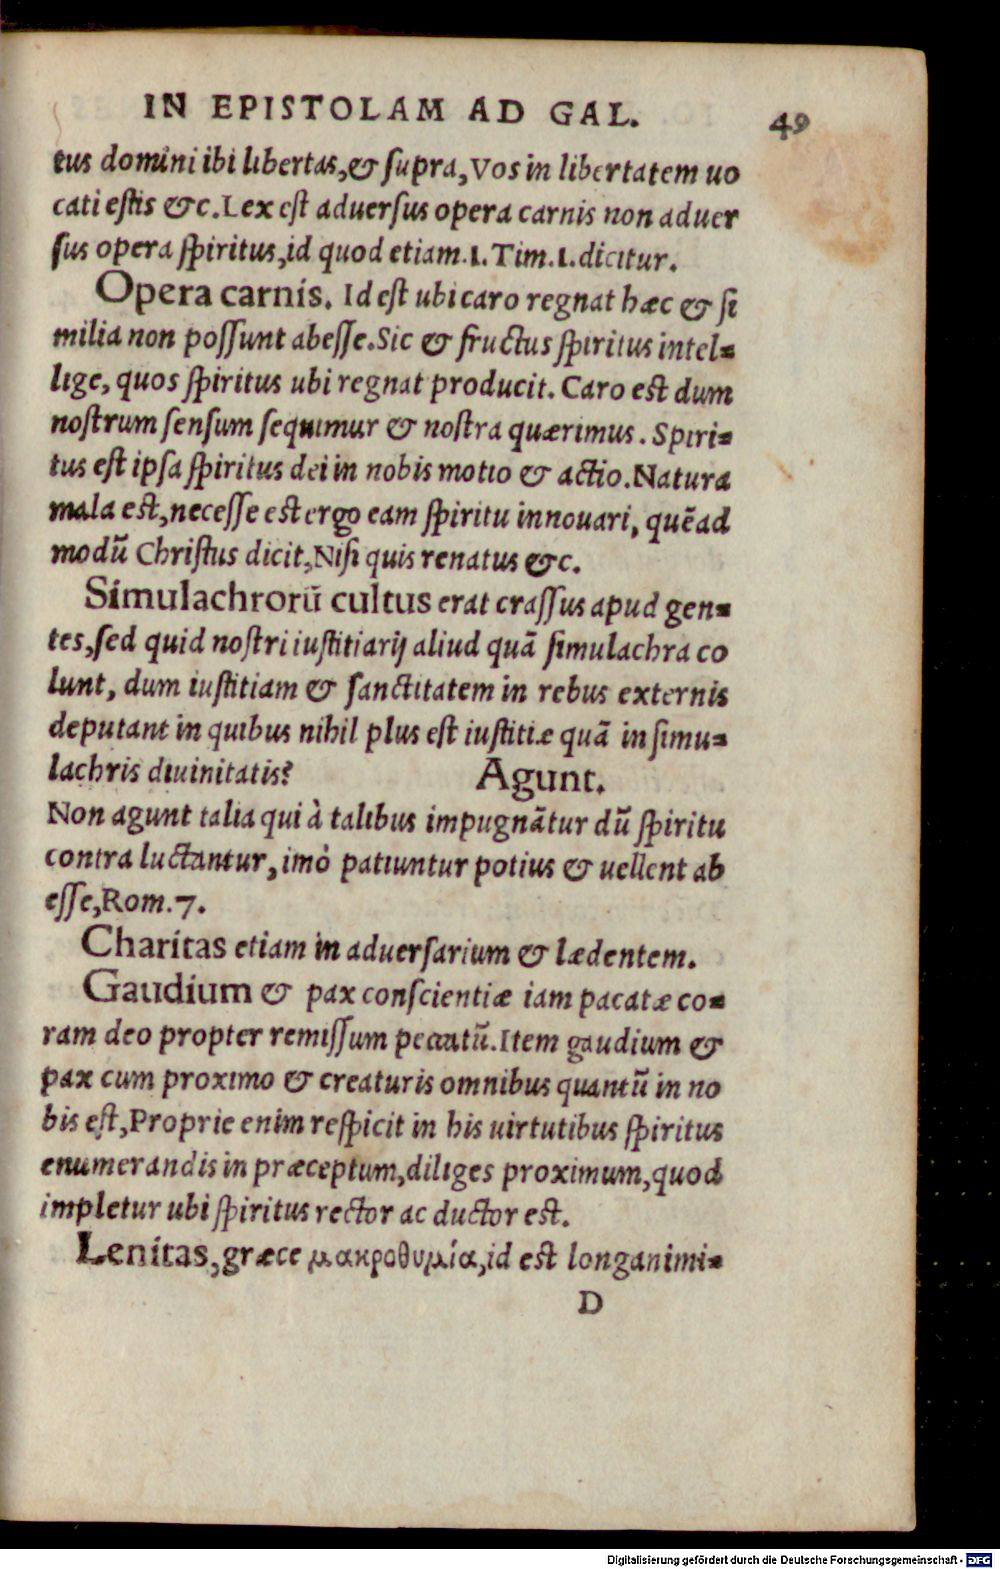 IN EPISTOLAM AD GAL. 49
tus domini ibi libertas,& supra,Vos in libertatem uo
cati estis &c.Lex est aduersus opera carnis non aduer
sus opera spiritus,id quod etiam.1.Tim.1.dicitur.
Opera carnis. Id est ubi caro regnat hæc & si
milia non possunt abesse.Sic & fructus spiritus intel-
lige, quos spiritus ubi regnat producit. Caro est dum
nostrum sensum sequimur & nostra quærimus. Spiri-
tus est ipsa spiritus dei in nobis motio & actio.Natura
mala est,necesse est ergo eam spiritu innouari, quẽad
modũ Christus dicit,Nisi quis renatus &c.
Simulachrorũ cultus erat crassus apud gen-
tes,sed quid nostri iustitiarij aliud quã simulachra co
lunt, dum iustitiam & sanctitatem in rebus externis
deputant in quibus nihil plus est iustitiæ quã in simu-
lachris diuinitatis? Agunt.
Non agunt talia qui à talibus impugnãtur dũ spiritu
contra luctantur,imò patiuntur potius & uellent ab
esse,Rom.7.
Charitas etiam in aduersarium & lædentem.
Gaudium & pax conscientiæ iam pacatæ co-
ram deo propter remissum peccatũ.Item gaudium &
pax cum proximo & creaturis omnibus quantũ in no
bis est,Proprie enim respicit in his uirtutibus spiritus
enumerandis in præceptum,diliges proximum,quod
impletur ubi spiritus rector ac ductor est.
Lenitas,græce μακροθυμία,id est longanimi-
D
Digitalisierung gefördert durch die Deutsche Forschungsgemeinschaft - DFG